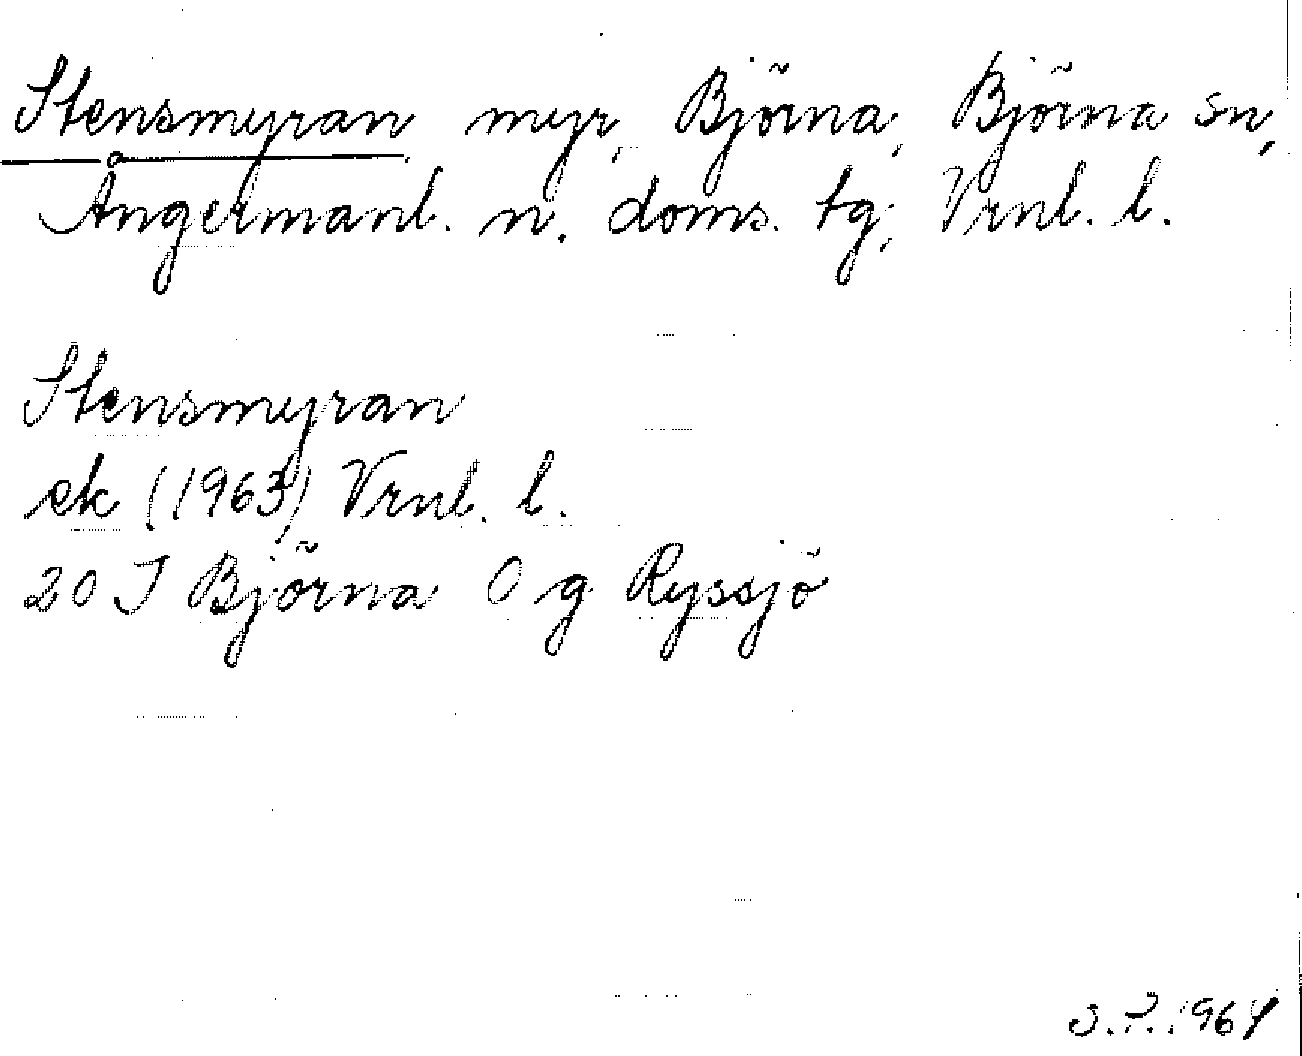 Stensmyran, myr, Björna, Björna sn,
Ångermanl. n. doms. tg, Vrnl. l.
Stensmyran
ek (1963) Vrnl. l.
20 J Björna 0 g Ryssjö
S.P. 1964